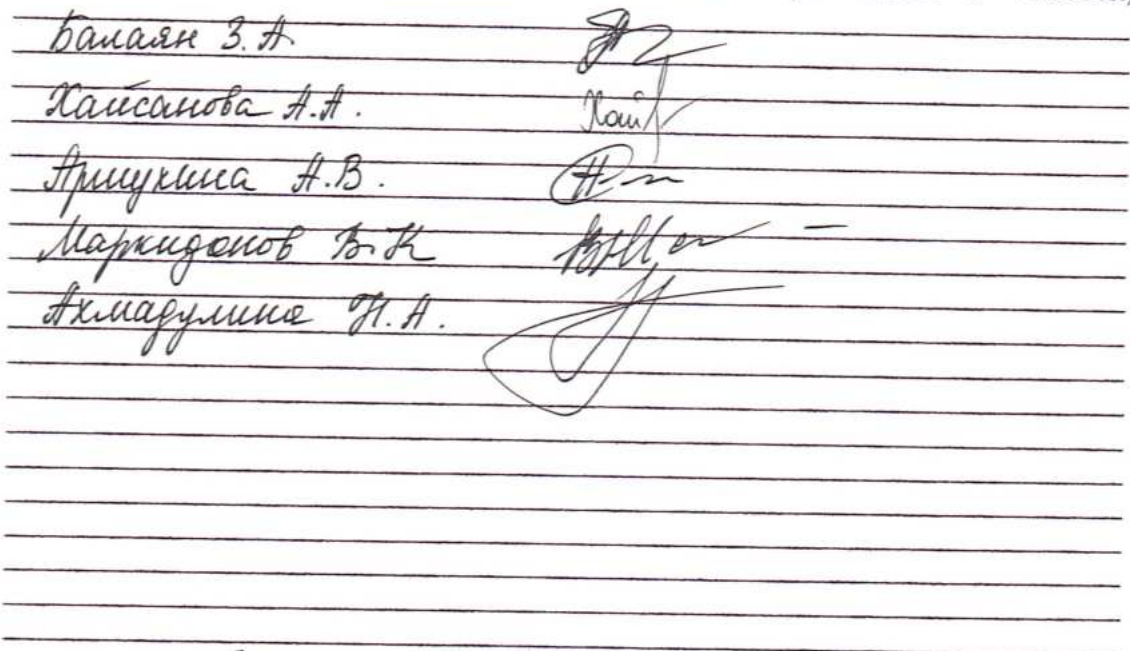 Балаян З.А.
Хайсанова А.А. Хай
Армухина А.В.
Маркидонов В.К
Ахмадулина Н.А.